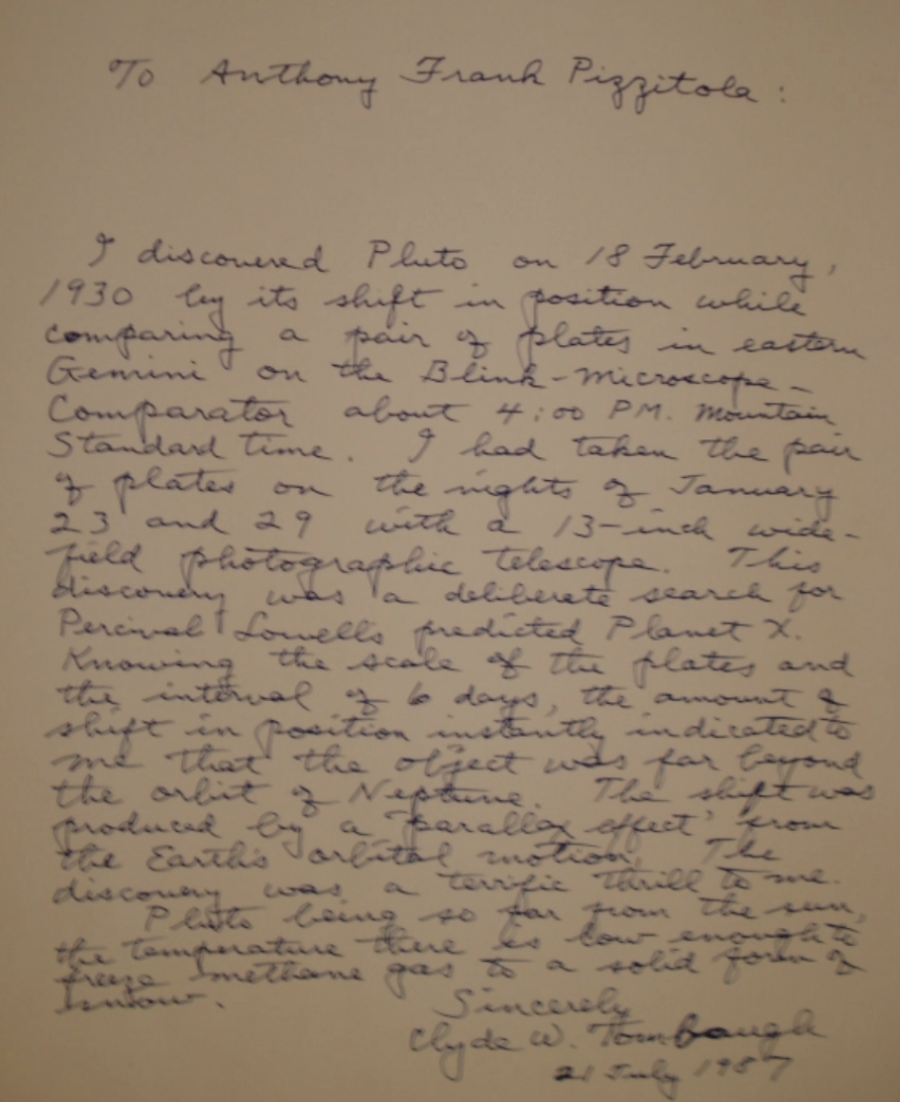 To Anthony Frank Pizzitola:
I discovered Pluto on 18 February,
1930 by its shift in position while
comparing a pair of plates in eastern
Gemini on the Blink-Microscope-
Comparator about 4:00 PM. Mountain
Standard time. I had taken the pair
of plates on the nights of January
23 and 29 with a 13-inch wide-
field photographic telescope. This
discovery was a deliberate search for
Percival Lowell's predicted Planet X.
Knowing the scale of the plates and
the interval of 6 days, the amount of
shift in position instantly indicated to
me that the object was far beyond
the orbit of Neptune. The shift was
produced by a "parallax effect" from
the Earth's orbital motion. The
discovery was a terrific thrill to me.
Pluto being so far from the sun,
the temperature there is low enough to
freeze methane gas to a solid form of
snow.
Sincerely
Clyde W. Tombaugh
21 July 1987